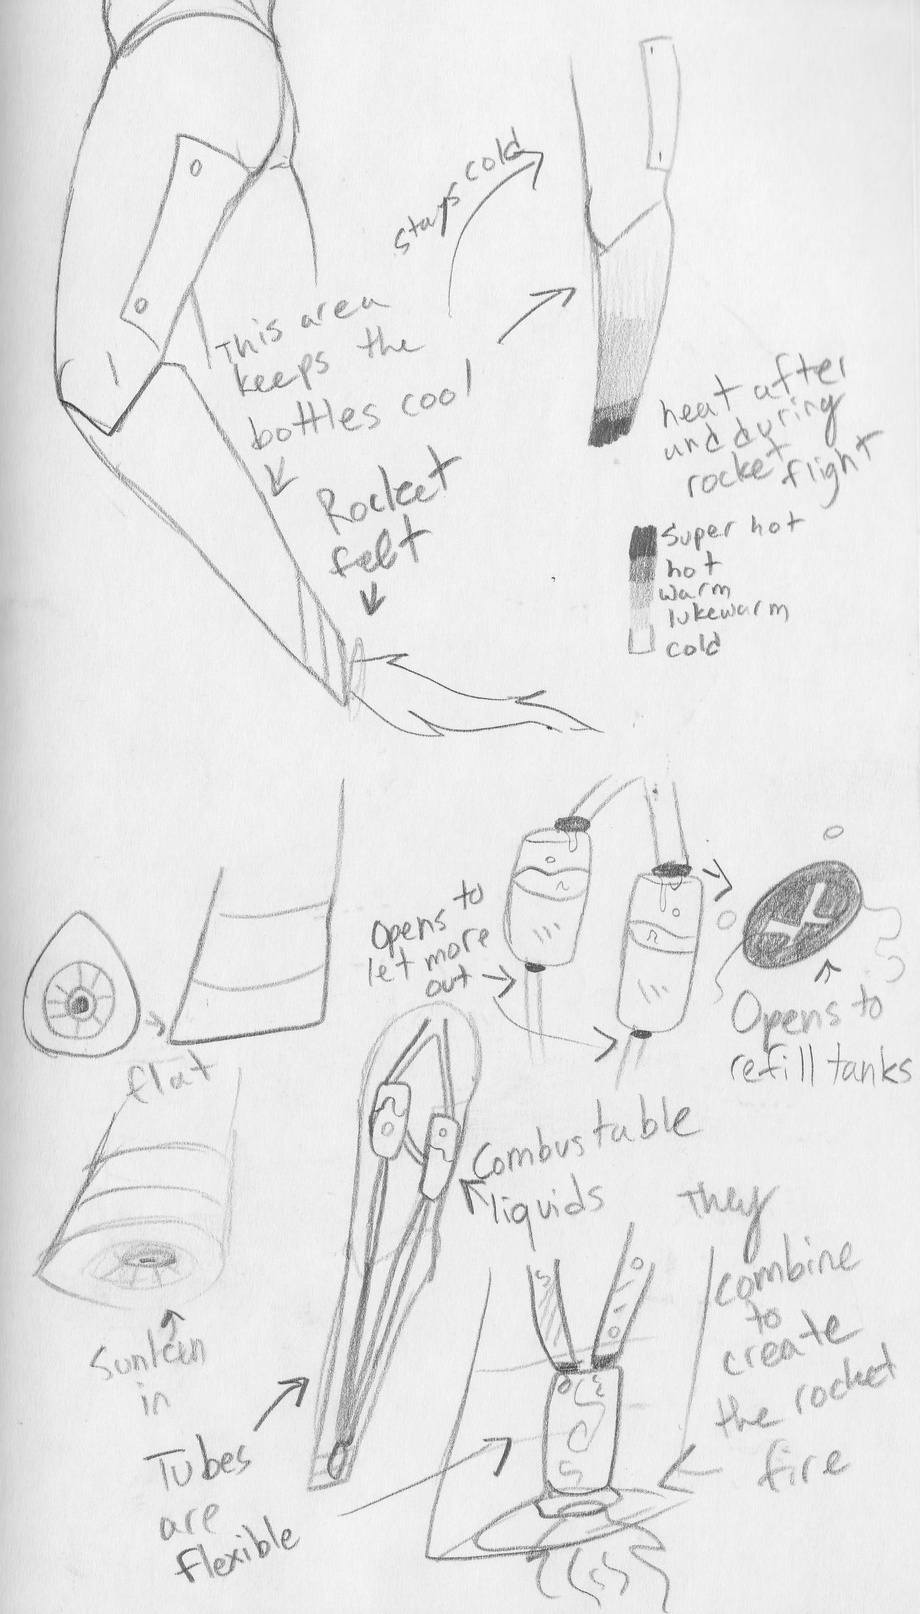 stays cold
This area
keeps the
bottles cool
Rocket
felt
heat after
and during
rocket flight
Super hot
hot
warm
lukewarm
cold
Opens to
let more
out
Opens to
refill tanks
flat
Combustable
liquids
Sunken
in
They
combine
to
create
the rocket
fire
Tubes
are
flexible